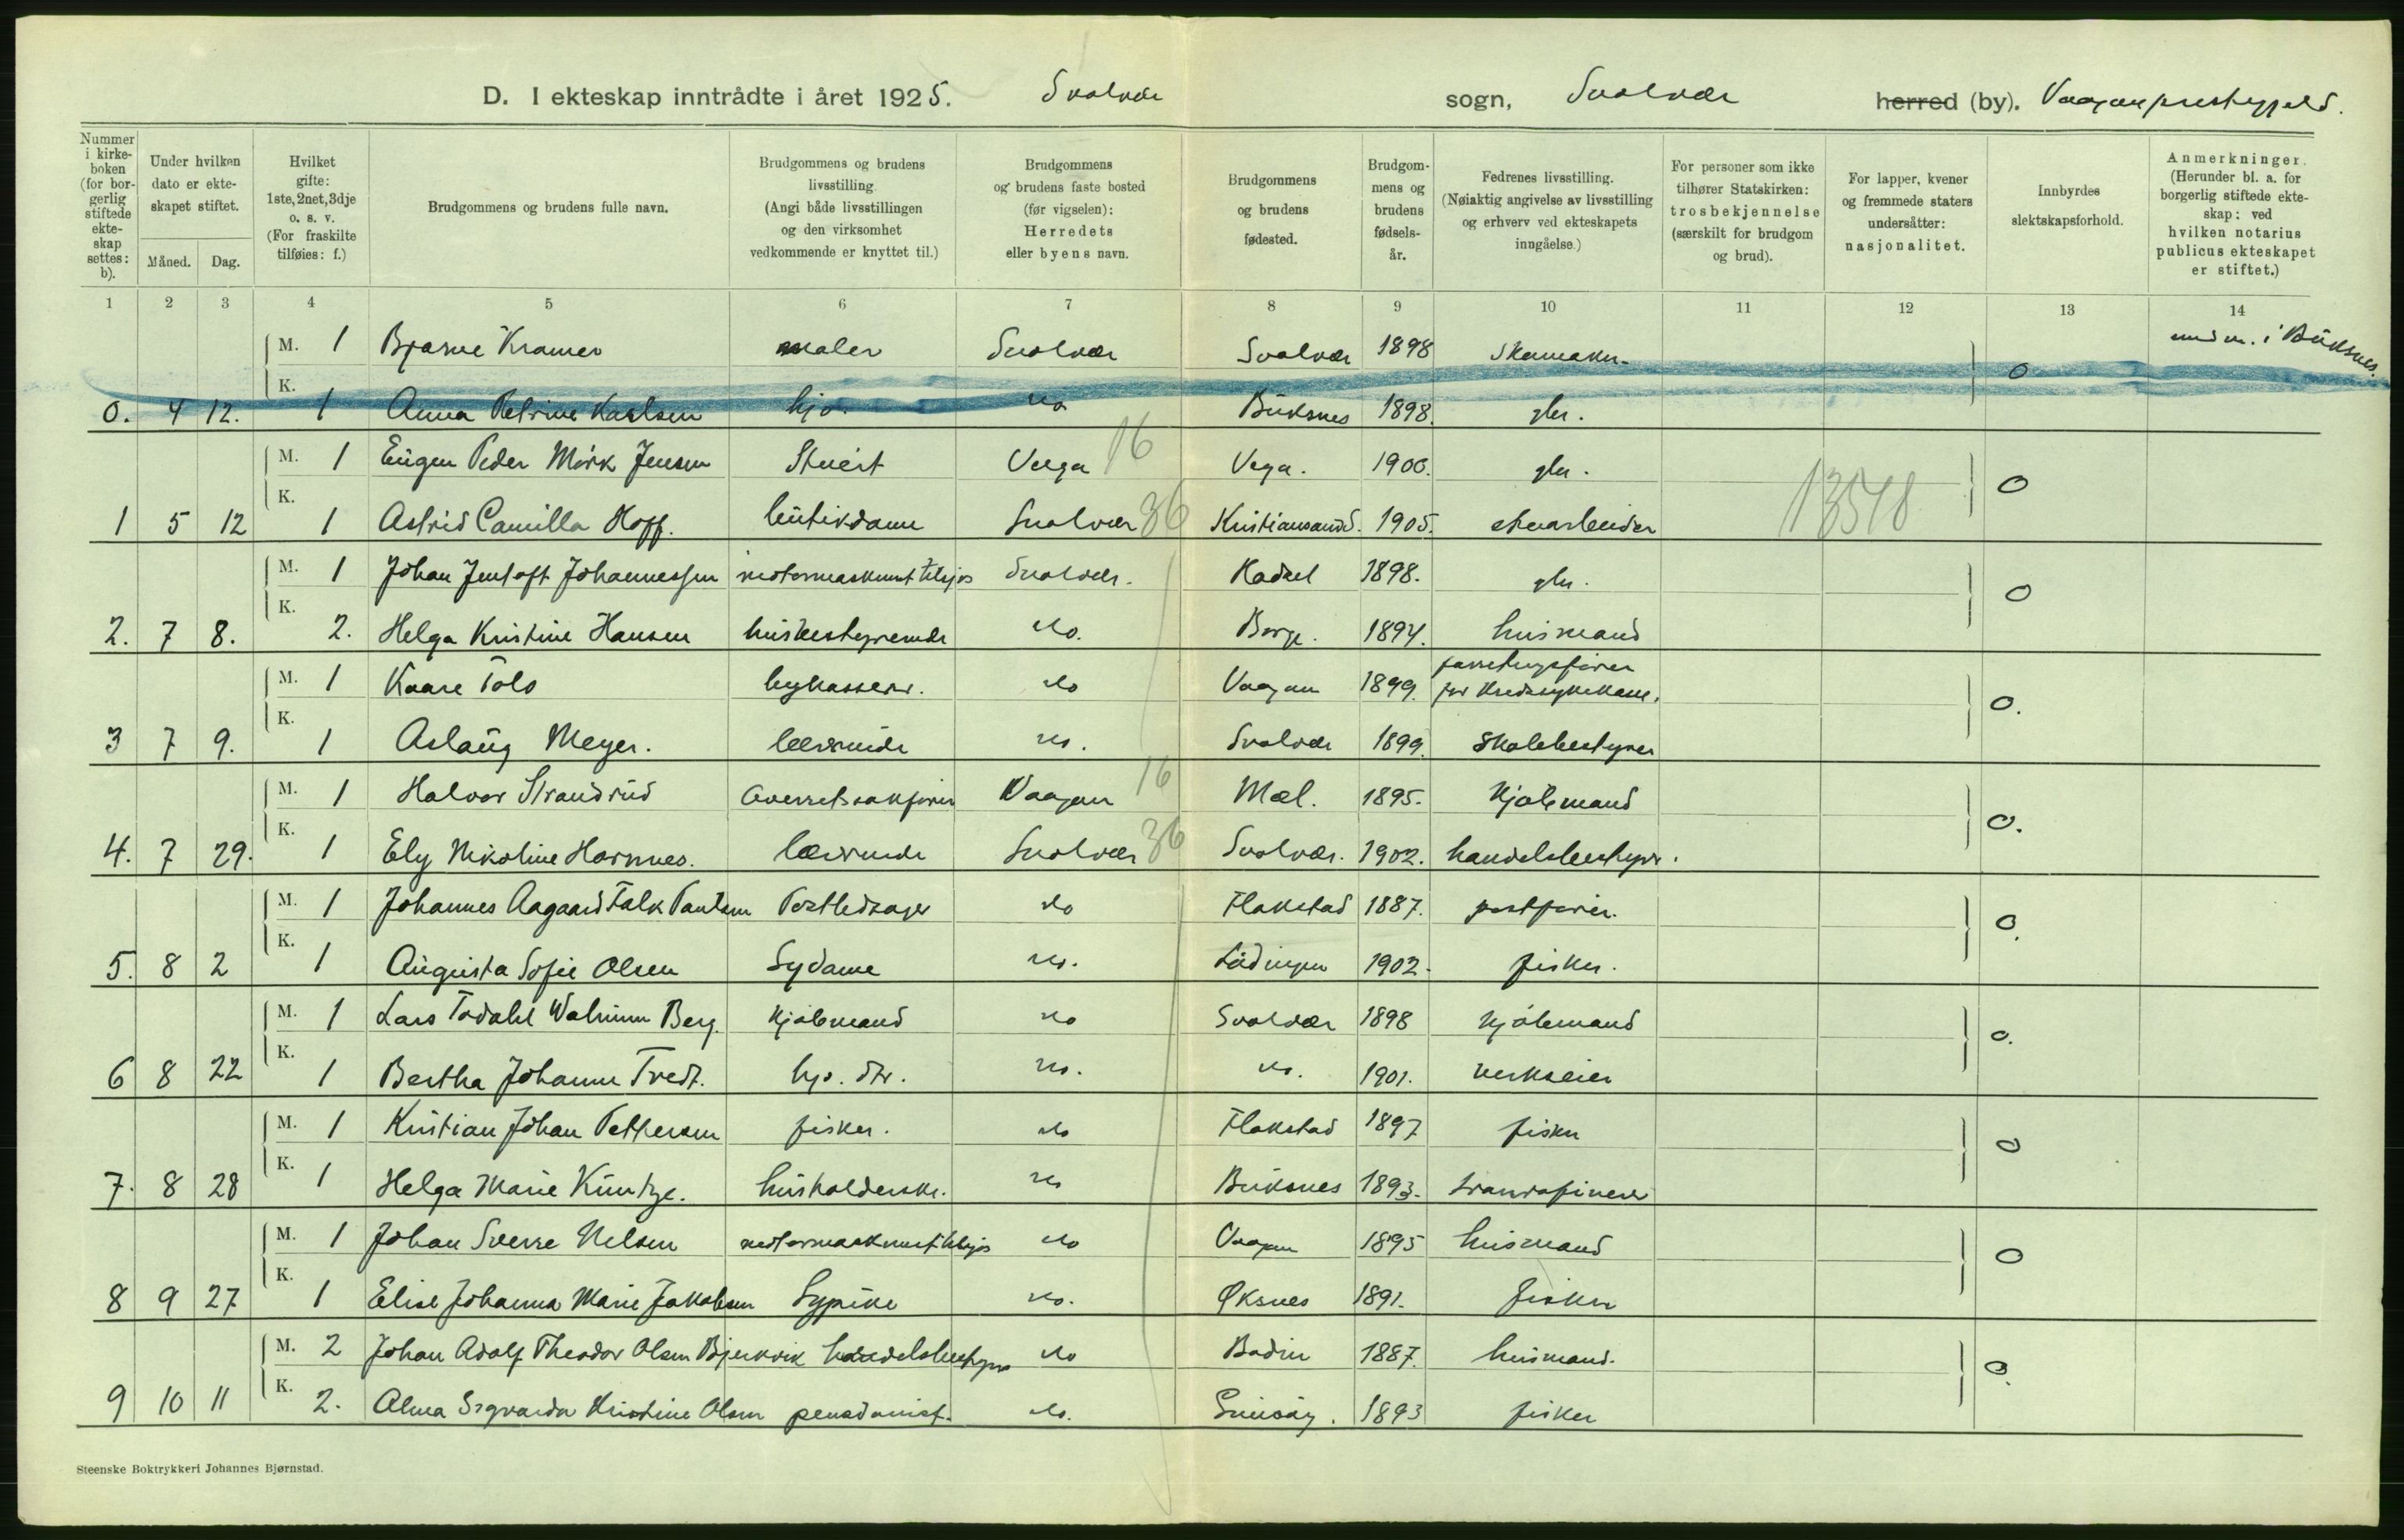 D. I ekteskap inntrådte i året 1925. Svolvær sogn, Svolvær herred (by). Vaagan prestegjeld.
Nummer i kirkeboken (for borgerlig stiftede ekteskap settes: b).
Under hvilken dato er ekteskapet stiftet.
Måned. Dag.
Hvilket gifte: 1ste, 2net, 3dje o. s. v. (For fraskilte tilføies: f.)
Brudgommens og brudens fulle navn.
Brudgommens og brudens livsstilling (Angi både livsstillingen og den virksomhet vedkommende er knyttet til.)
Brudgommens og brudens faste bosted (før vigselen): Herredets eller byens navn.
Brudgommens og brudens fødested.
Brudgommens og brudens fødselsår.
Fedrenes livsstilling. (Nøiaktig angivelse av livsstilling og erhverv ved ekteskapets inngåelse.)
For personer som ikke tilhører Statskirken: trosbekjennelse (særskilt for brudgom og brud).
For lapper, kvener og fremmede staters undersåtter: nasjonalitet.
Innbyrdes slektskapsforhold.
Anmerkninger. (Herunder bl. a. for borgerlig stiftede ekteskap: ved hvilken notarius publicus ekteskapet er stiftet.)
1 2 3 4 5 6 7 8 9 10 11 12 13 14
M. 1 Bjarne Kramer maler Svolvær Svolvær 1898 Skomaker 0 i Buksnes.
K. 0. 4 12. 1 Anna Petrine Karlsen do Buksnes 1898. gbr.
M. 1 Eugen Peder Mörk Jensen Stuert Vega 16 Vega. 1900. gbr. 0
K. 1 5 12 1 Astrid Camilla Hoff. butikdame Svolvær 36 Kristiansund. 1905. 13518
M. 1 Johan Jentoft Johannessen Svolvær. Hadsel 1898. gbr. 0
K. 2. 7 8. 2. Helga Kristine Hansen husbestyrerinde do. Borge. 1894. husmand
M. 1 Kaare Tolo bykasserer. do Vaagan 1899. forretningsfører for Kredssykekasse. 0.
K. 3 7 9. 1 Aslaug Meyer. lærerinde do. Svolvær 1899. Skolebestyrer
M. 1 Halvor Strandrud Overretssakfører Vaagan 16 Mæl. 1895. Kjöbmand 0.
K. 4. 7 29. 1 Ely Nikoline Harnnes. lærerinde Svolvær 36 Svolvær. 1902. handelsbestyrer.
M. 1 Johannes Aagaard Falk Paulsen Postbedrager do Flakstad 1887. postfører. 0.
K. 5. 8 2 1 Augusta Sofie Olsen Sydame do. Lödingen 1902. fisker.
M. 1 Lars Todahl Walnum Berg. Kjöbmand do Svolvær 1898 Kjöbmand 0.
K. 6 8 22 1 Bertha Johanne Tvedt. hj. dtr. do. do. 1901. verkseier
M. 1 Kristian Johan Pettersen fisker. do Flakstad 1897 fisker 0
K. 7. 8 28 1 Helga Marie Küntze. husholderske. do Buksnes 1893.
M. 1 Johan Sverre Nelsen do Vaagan 1895 husmand 0
K. 8 9 27 1 Elise Johanna Marie Jakobsen Sypike do. Øksnes 1891. fisker
M. 2 Johan Adolf Theodor Olsen Bjerkvik handelsbestyrer do Bodin 1887. husmand. 0.
K. 9 10 11 2. Alma Kristine Olsen pensionist. do. Gimsöy. 1893 fisker
Steenske Boktrykkeri Johannes Bjørnstad.